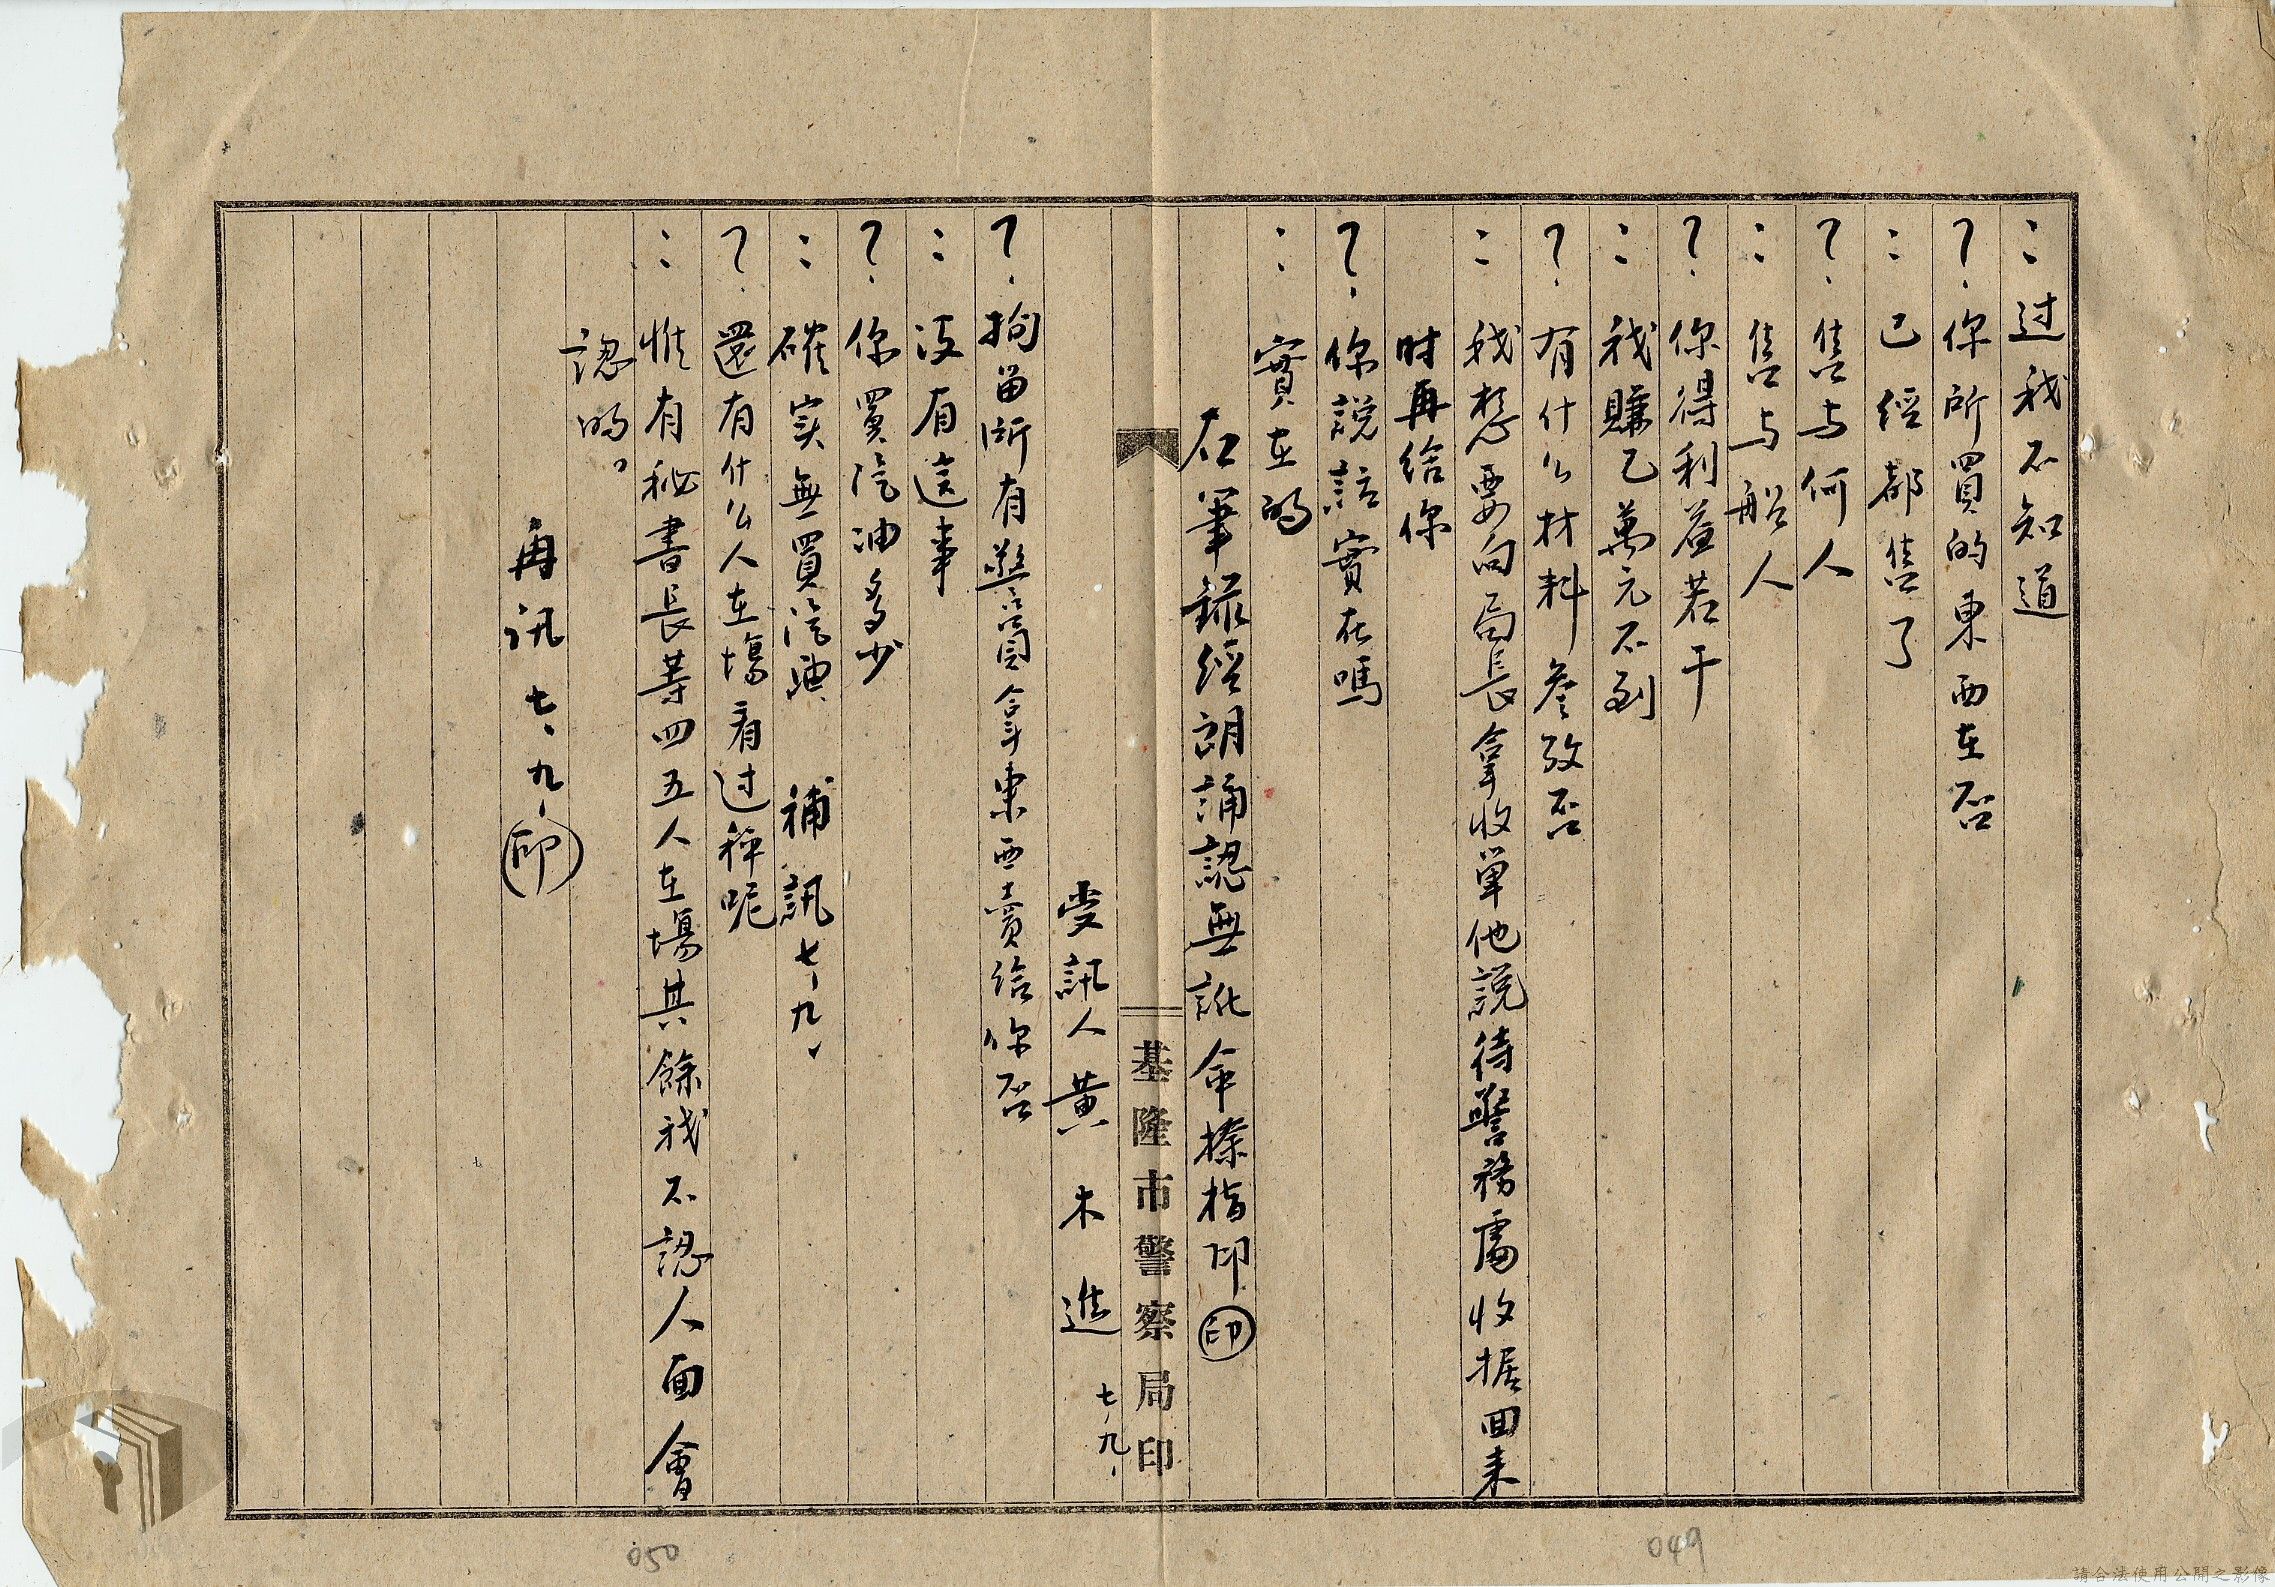 ：过我不知道
？.你所買的東西在否
：已經都售了
？.售与何人
：售与船人
？.你得利益若干
：我賺乙萬元不到
？.有什么材料参攷否
：我想要向局長拿收單他說待警務處收据回来
时再給你
？.你說話實在嗎
：實在的
右筆録經朗誦認無訛命捺指印㊞
基隆市警察局印
受訊人黄木進 七、九、
？.拘留所有警員拿東西賣給你否
：没有這事
？.你買汽油多少
：確实無買汽油 補訊七、九、
？.還有什么人在場看过秤呢
：惟有秘書長等四五人在場其餘我不認人面會
認的。
再訊七、九、㊞
050
049
請合法使用公開之影像